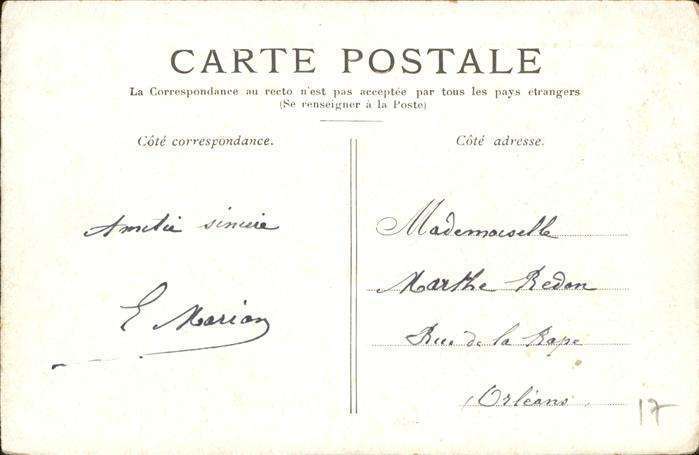 CARTE POSTALE
La Correspondance au recto n'est pas acceptée par tous les pays étrangers
(Se renseigner à la Poste)
Côté correspondance.
Côté adresse.
Amitié sincère
E Marion
Mademoiselle
Marthe Redon
Rue de la Rape
Orléans
17